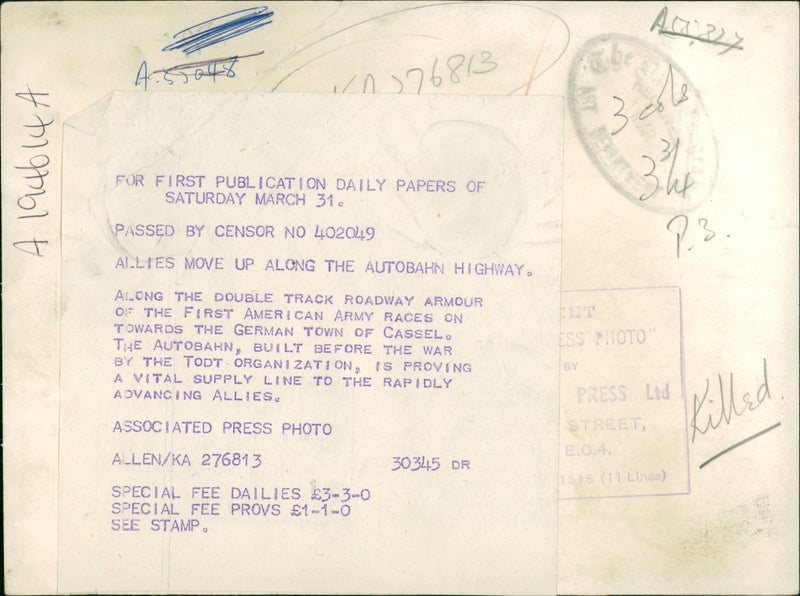 A.57048
KA 276813
A194614A
The
ART
3 cols
31/3/4
P.3.
FOR FIRST PUBLICATION DAILY PAPERS OF
SATURDAY MARCH 31.
PASSED BY CENSOR NO 402049
ALLIES MOVE UP ALONG THE AUTOBAHN HIGHWAY.
ALONG THE DOUBLE TRACK ROADWAY ARMOUR
OF THE FIRST AMERICAN ARMY RACES ON
TOWARDS THE GERMAN TOWN OF CASSEL.
THE AUTOBAHN, BUILT BEFORE THE WAR
BY THE TODT ORGANIZATION, IS PROVING
A VITAL SUPPLY LINE TO THE RAPIDLY
ADVANCING ALLIES.
ASSOCIATED PRESS PHOTO
ALLEN/KA 276813 30345 DR
SPECIAL FEE DAILIES £3-3-0
SPECIAL FEE PROVS £1-1-0
SEE STAMP.
ESS PHOTO"
BY
PRESS Ltd
STREET,
E.C.4.
1515 (11 Lines)
Killed.